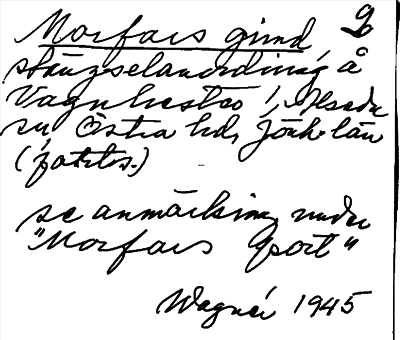 Morfars grind, g
stängselanordning å
Vagnhester i, Alseda
sn Östra hd, Jönk. län
(fotrtos.)
se anmärkning under
"Morfars port"
Wagnér 1945